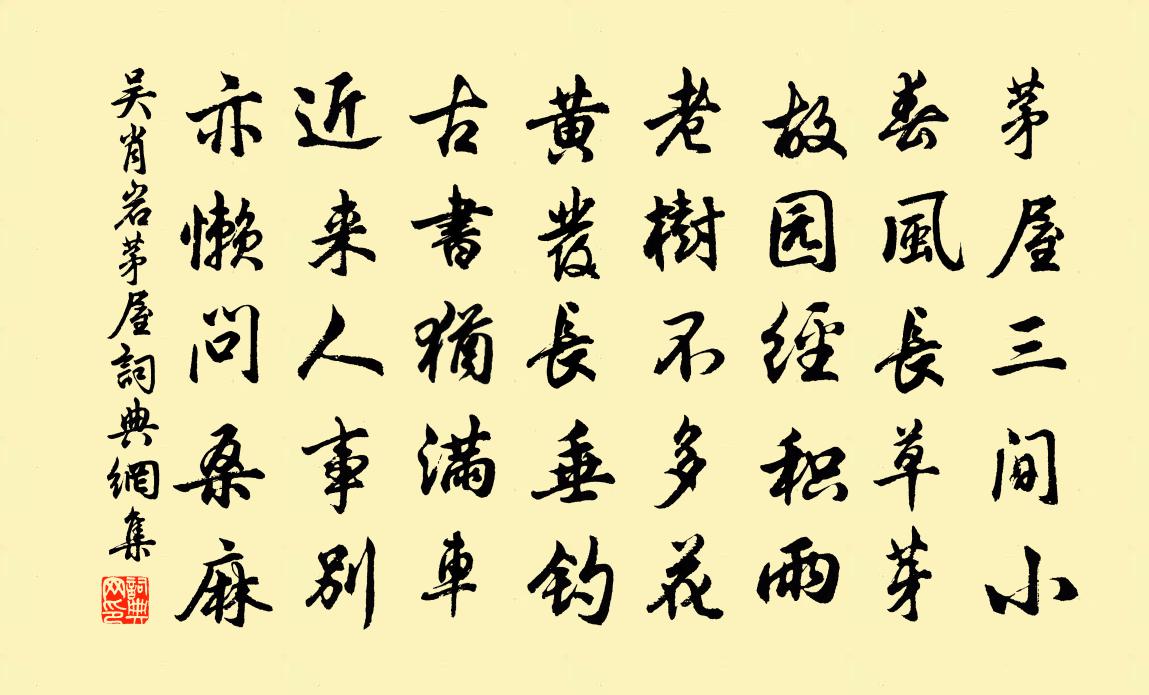 茅屋三间小
春風長草芽
故园經积雨
老樹不多花
黄發長垂钓
古書猶满車
近来人事別
亦懒问桑麻
吴肖岩茅屋詞典網集
詞典网印